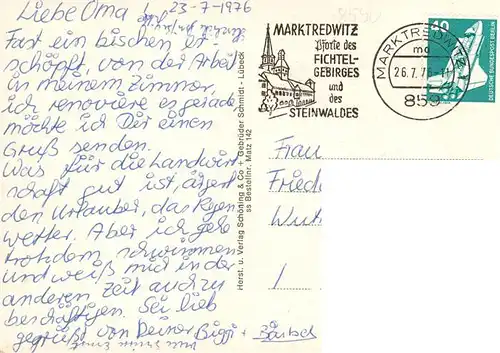 Liebe Oma! 23-7-1976
Fast ein bischen er-
schöpft von der Arbeit
in meinem Zimmer,
ich renoviere es gerade,
möchte ich Dir einen
Gruß senden.
Was für die Landwirt-
schaft gut ist, ärgert
den Urlauber, das Regen-
wetter. Aber ich gehe
trotzdem schwimmen
und weiß mich in der
anderen Zeit auch zu
beschäftigen. Sei lieb
gegrüßt von Deiner Biggi +
Herst. u. Verlag Schöning & Co + Gebrüder Schmidt · Lübeck
ss Bestellnr. Matz 142
MARKTREDWITZ
Pforte des
FICHTEL-
GEBIRGES
und
des
STEINWALDES
MARKTREDWITZ
ma
26.7.76
859
40
DEUTSCHE BUNDESPOST BERLIN
Frau
Fried
Wu